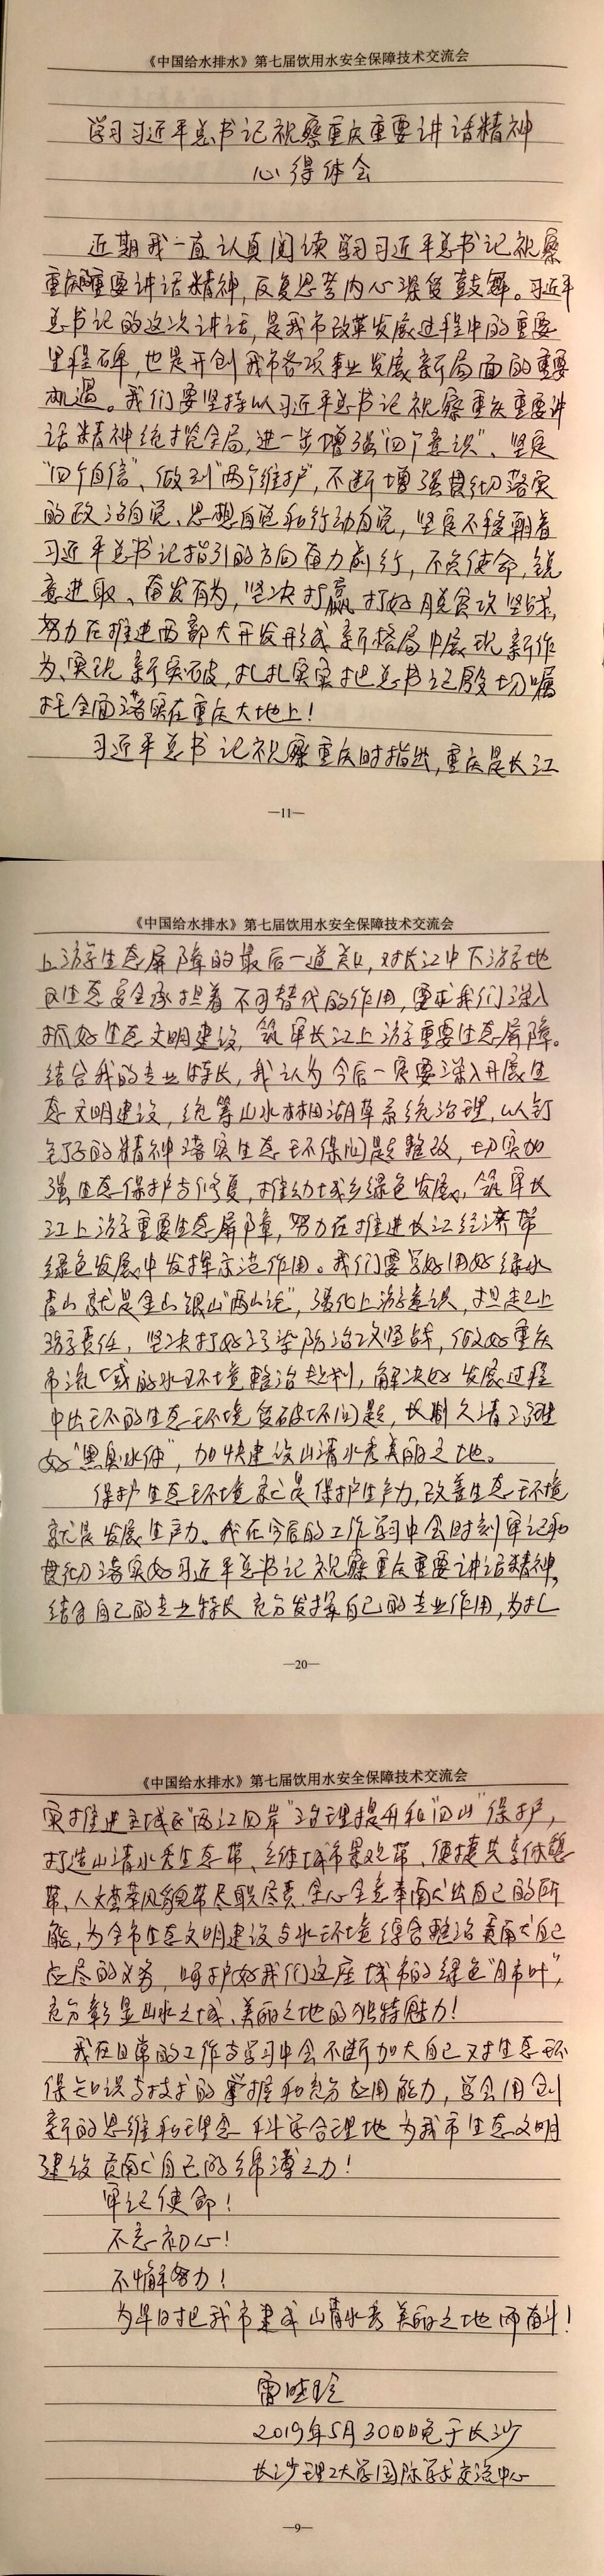 《中国给水排水》第七届饮用水安全保障技术交流会
学习习近平总书记视察重庆重要讲话精神
心得体会
近期我一直认真阅读学习习近平总书记视察
重庆的重要讲话精神,反复思考内心深受鼓舞。习近平
总书记的这次讲话,是我市改革发展过程中的重要
里程碑,也是开创我市各项事业发展新局面的重要
机遇。我们要坚持以习近平总书记视察重庆重要讲
话精神统揽全局,进一步增强“四个意识”、坚定
“四个自信”、做到“两个维护”,不断增强贯彻落实
的政治自觉、思想自觉和行动自觉,坚定不移朝着
习近平总书记指引的方向奋力前行,不负使命,锐
意进取、奋发有为,坚决打赢打好脱贫攻坚战,
努力在推进西部大开发形成新格局中展现新作
为、实现新突破,扎扎实实把总书记殷切嘱
托全面落实在重庆大地上!
习近平总书记视察重庆时指出,重庆是长江
—11—
《中国给水排水》第七届饮用水安全保障技术交流会
上游生态屏障的最后一道关口,对长江中下游地
区生态安全承担着不可替代的作用,要求我们深入
抓好生态文明建设,筑牢长江上游重要生态屏障。
结合我的专业特长,我认为今后一定要深入开展生
态文明建设,统筹山水林田湖草系统治理,以钉
钉子的精神落实生态环保问题整改,切实加
强生态保护与修复,推动城乡绿色发展,筑牢长
江上游重要生态屏障,努力在推进长江经济带
绿色发展中发挥示范作用。我们要学好用好绿水
青山就是金山银山“两山论”,强化上游意识,担起上
游责任,坚决打好污染防治攻坚战,做好重庆
市流域的水环境整治规划,解决好发展过程
中出现的生态环境负破坏问题,长期久清治理
好“黑臭水体”,加快建设山清水秀美丽之地。
保护生态环境就是保护生产力,改善生态环境
就是发展生产力。我在今后的工作学习中会时刻牢记和
贯彻落实好习近平总书记视察重庆重要讲话精神,
结合自己的专业特长充分发挥自己的专业作用,为扎
—20—
《中国给水排水》第七届饮用水安全保障技术交流会
实推进主城区“两江四岸”治理提升和“四山”保护,
打造山清水秀生态带、立体城市景观带、便捷共享休憩
带、人文荟萃风貌带尽职尽责,全心全意奉献出自己的所
能,为全市生态文明建设与水环境综合整治贡献自己
应尽的义务,呵护好我们这座城市的绿色“肺叶”,
充分彰显山水之城、美丽之地的独特魅力!
我在日常的工作与学习中会不断加大自己对生态环
保知识与技术的掌握和充分应用能力,学会用创
新的思维和理念科学合理地为我市生态文明
建设贡献自己的绵薄之力!
牢记使命!
不忘初心!
不懈努力!
为早日把我市建成山清水秀美丽之地而奋斗!
雷晓玲
2019年5月30日晚于长沙
长沙理工大学国际学术交流中心
—9—